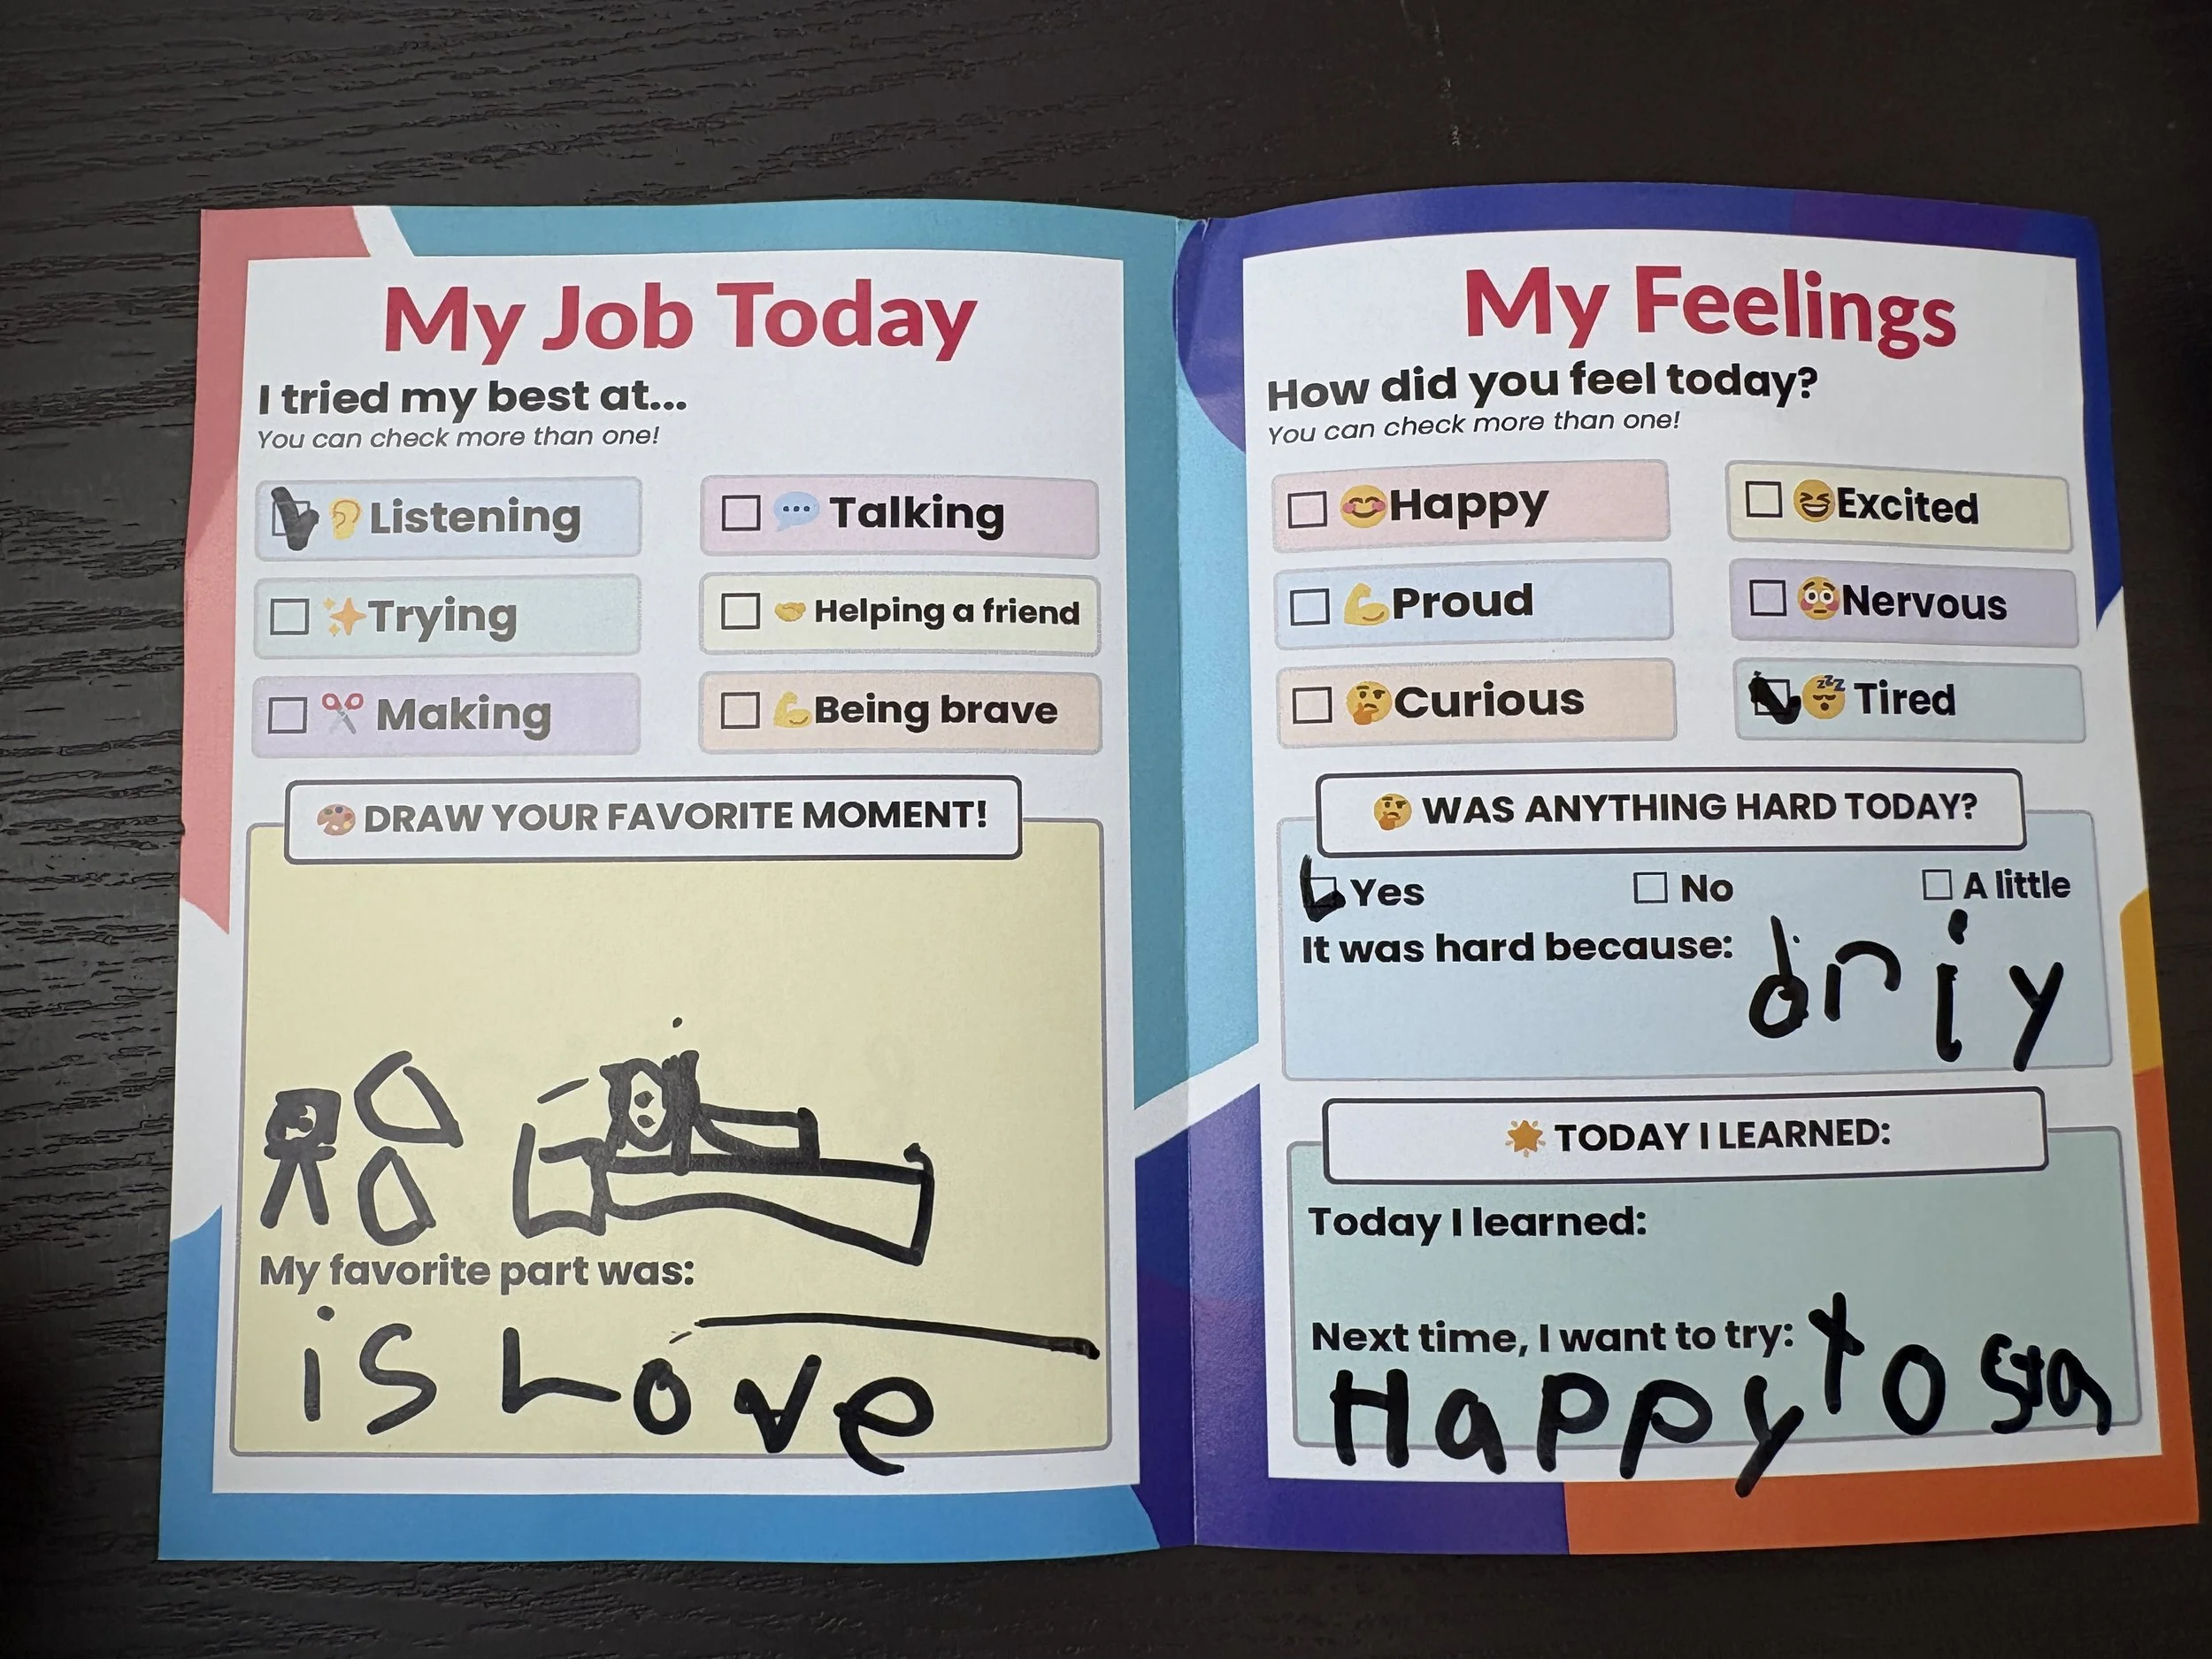 My Job Today
I tried my best at...
You can check more than one!
👂 Listening
💬 Talking
✨ Trying
🤝 Helping a friend
✂️ Making
💪 Being brave
🎨 DRAW YOUR FAVORITE MOMENT!
My favorite part was:
is Love
My Feelings
How did you feel today?
You can check more than one!
😊 Happy
😆 Excited
💪 Proud
😳 Nervous
🤔 Curious
😴 Tired
🤔 WAS ANYTHING HARD TODAY?
Yes No A little
It was hard because: driy
🌟 TODAY I LEARNED:
Today I learned:
Next time, I want to try:
Happy to sta